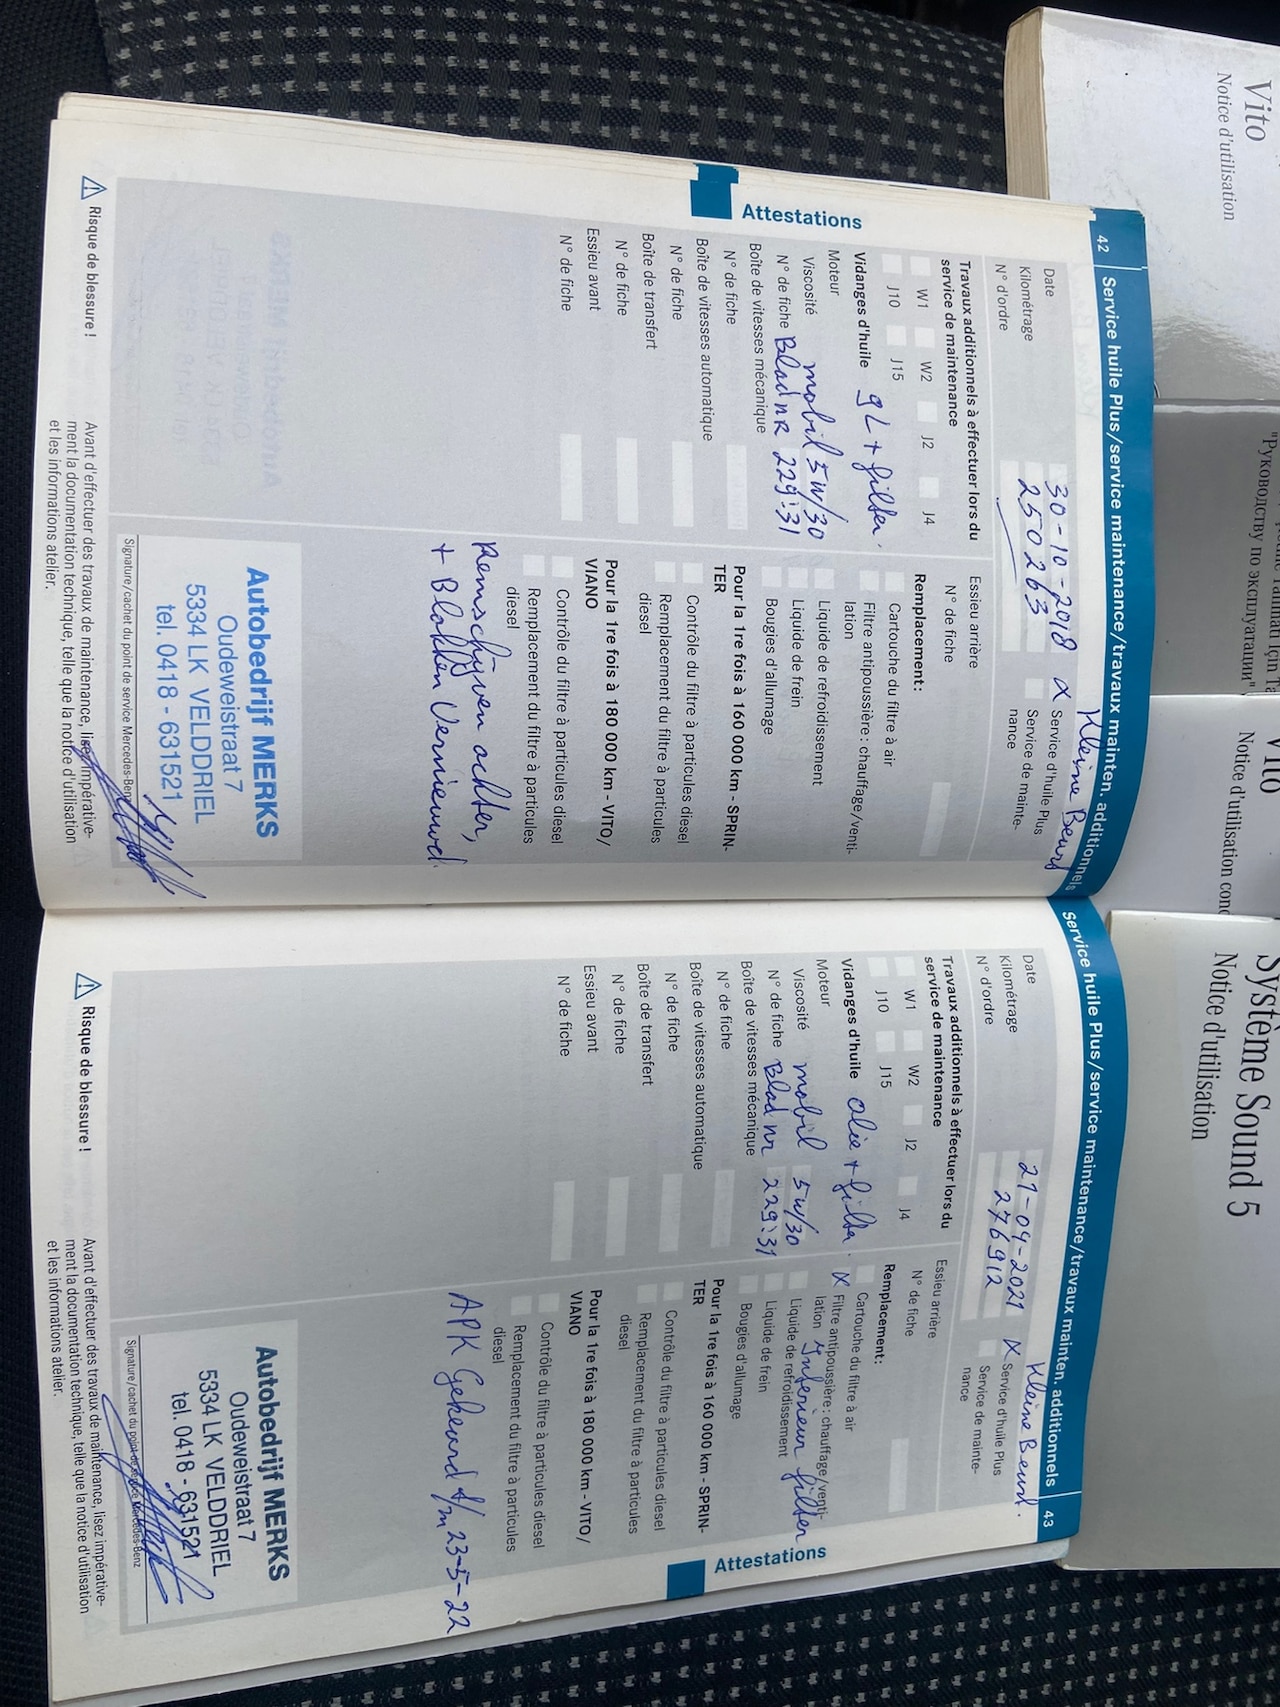 42 Service huile Plus/service maintenance/travaux mainten. additionnels
Kleine Beurt
Attestations
Date 30-10-2018
Kilométrage 250263
N° d'ordre
Service d'huile Plus
Service de mainte-
nance
Travaux additionnels à effectuer lors du
service de maintenance
W1 W2 J2 J4
J10 J15
Vidanges d'huile 9L + filter.
Moteur
Viscosité mobil 5W/30
N° de fiche Blad nR 229.31
Boîte de vitesses mécanique
N° de fiche
Boîte de vitesses automatique
N° de fiche
Boîte de transfert
N° de fiche
Essieu avant
N° de fiche
Essieu arrière
N° de fiche
Remplacement:
Cartouche du filtre à air
Filtre antipoussière: chauffage/venti-
lation
Liquide de refroidissement
Liquide de frein
Bougies d'allumage
Pour la 1re fois à 160 000 km - SPRIN-
TER
Contrôle du filtre à particules diesel
Remplacement du filtre à particules
diesel
Pour la 1re fois à 180 000 km - VITO/
VIANO
Contrôle du filtre à particules diesel
Remplacement du filtre à particules
diesel
Remschijven achter,
+ Blokken Vernieuwd.
Autobedrijf MERKS
Oudeweistraat 7
5334 LK VELDDRIEL
tel. 0418 - 631521
Signature/cachet du point de service Mercedes-Benz
Risque de blessure !
Avant d'effectuer des travaux de maintenance, lisez impérative-
ment la documentation technique, telle que la notice d'utilisation
et les informations atelier.
Service huile Plus/service maintenance/travaux mainten. additionnels 43
Kleine Beurt.
Attestations
Date 21-04-2021
Kilométrage 276912
N° d'ordre
Service d'huile Plus
Service de mainte-
nance
Travaux additionnels à effectuer lors du
service de maintenance
W1 W2 J2 J4
J10 J15
Vidanges d'huile olie + filter.
Moteur
Viscosité mobil 5W/30
N° de fiche Blad nr 229.31
Boîte de vitesses mécanique
N° de fiche
Boîte de vitesses automatique
N° de fiche
Boîte de transfert
N° de fiche
Essieu avant
N° de fiche
Essieu arrière
N° de fiche
Remplacement:
Cartouche du filtre à air
Filtre antipoussière: chauffage/venti-
lation Interieur filter
Liquide de refroidissement
Liquide de frein
Bougies d'allumage
Pour la 1re fois à 160 000 km - SPRIN-
TER
Contrôle du filtre à particules diesel
Remplacement du filtre à particules
diesel
Pour la 1re fois à 180 000 km - VITO/
VIANO
Contrôle du filtre à particules diesel
Remplacement du filtre à particules
diesel
APK Gekeurd t/m 23-5-22
Autobedrijf MERKS
Oudeweistraat 7
5334 LK VELDDRIEL
tel. 0418 - 631521
Signature/cachet du point de service Mercedes-Benz
Risque de blessure !
Avant d'effectuer des travaux de maintenance, lisez impérative-
ment la documentation technique, telle que la notice d'utilisation
et les informations atelier.
Vito
Notice d'utilisation
"Руководству по эксплуатации"
Vito
Notice d'utilisation
Système Sound 5
Notice d'utilisation